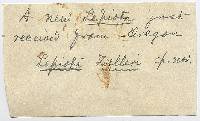 A new Lepiota just
received from Oregon
Lepiota Zelleri sp. nov.